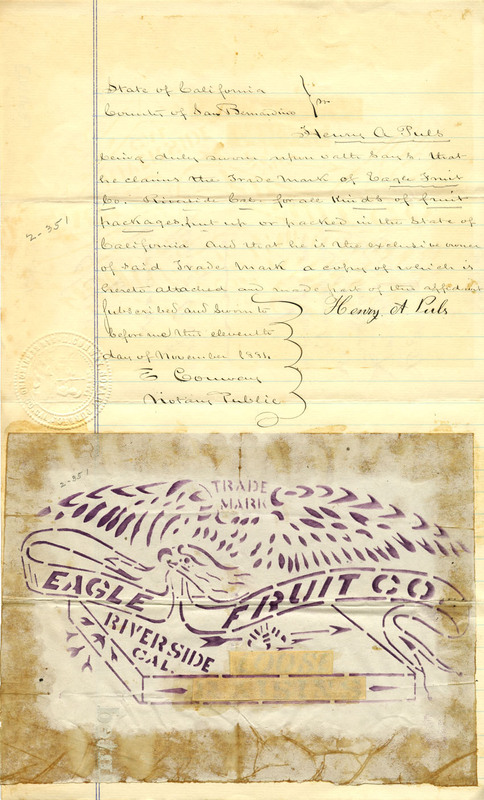 State of California
County of San Bernardino } ss
Henry A Puls
being duly sworn upon oath says: that
he claims the Trade Mark of Eagle Fruit
Co. Riverside Cal. for all Kinds of fruit
packages, put up or packed in the State of
California and that he is the exclusive owner
of said Trade Mark a copy of which is
hereto attached and made part of this affidavit
Subscribed and Sworn to
Henry A Puls
before me this eleventh
day of November 1891.
Conway
Notary Public
2-351
2-351
TRADE
MARK
EAGLE FRUIT CO.
RIVERSIDE
CAL.